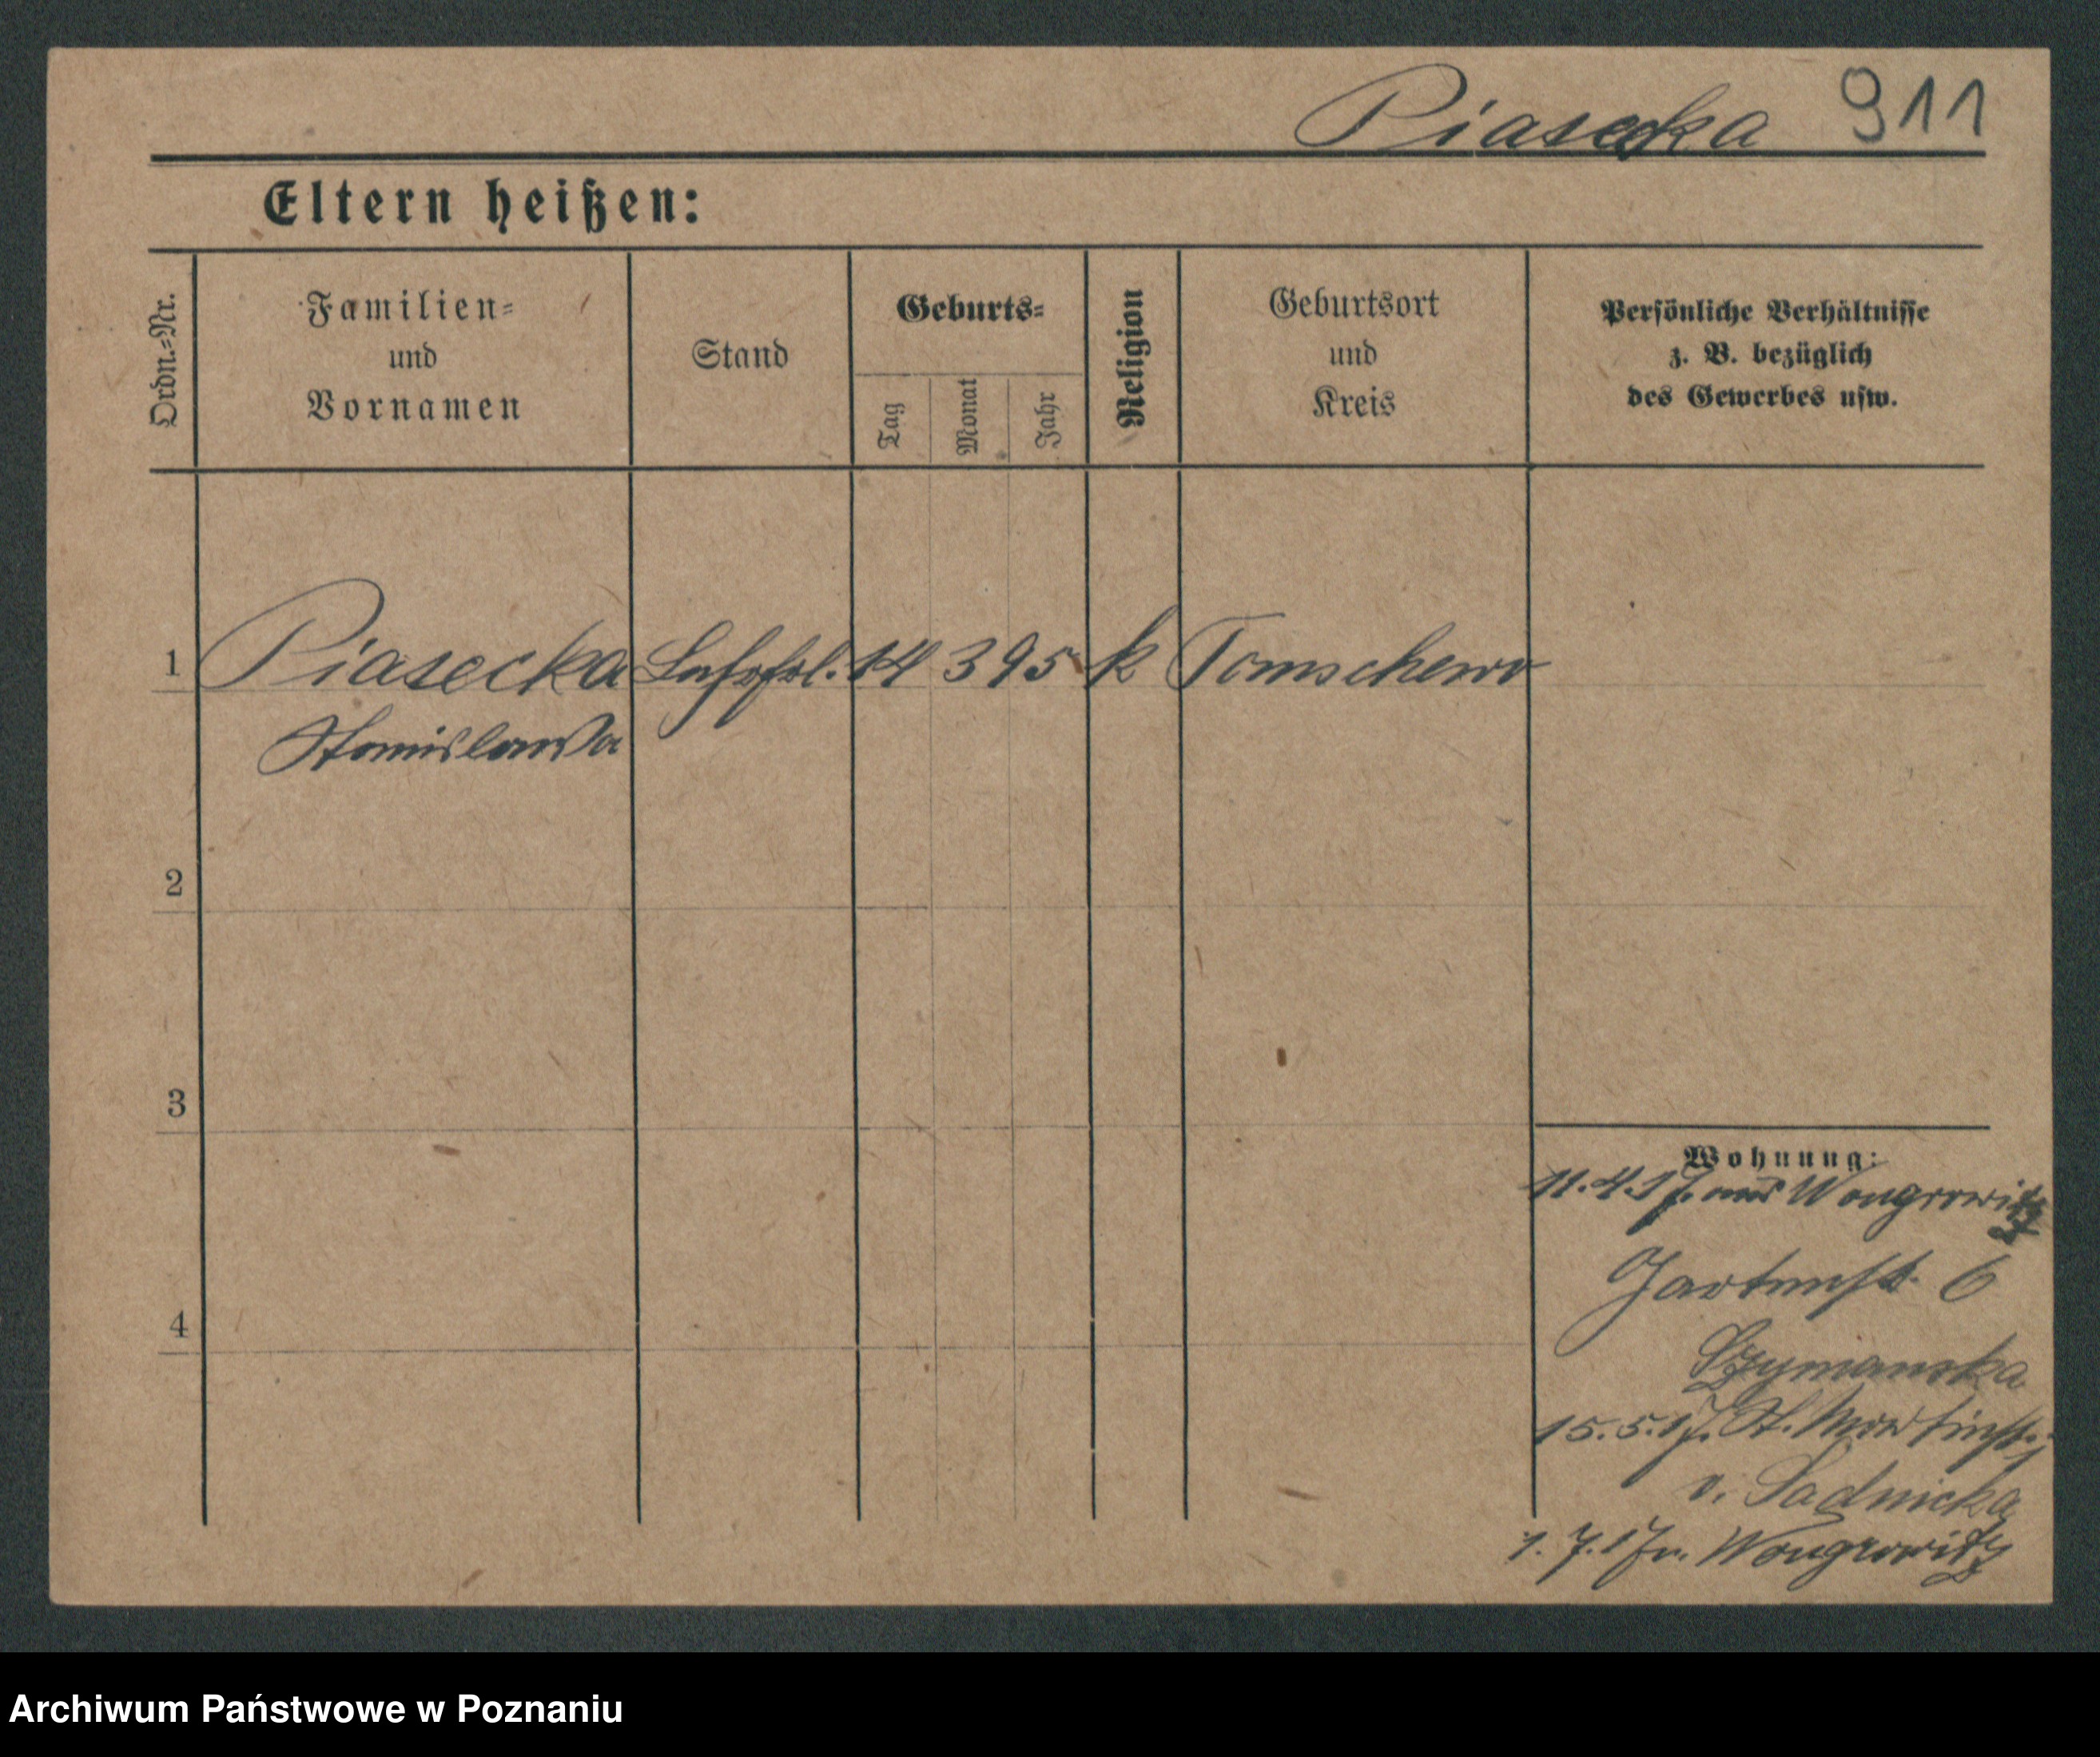 Piasecka 911
Eltern heißen:
Ordn.-Nr.
Familien-
und
Vornamen
Stand
Geburts-
Tag
Monat
Jahr
Religion
Geburtsort
und
Kreis
Persönliche Verhältnisse
z. B. bezüglich
des Gewerbes usw.
1 Piasecka 14 3 95 k Tomschewo
Stanislawa
2
3
4
Wohnung:
11.4.17. aus Wongrowitz
Gartenst. 6
Szymanska
15.5.17. St. Martinst.
v. Sadnicka
1.7.17 n. Wongrowitz
Archiwum Państwowe w Poznaniu